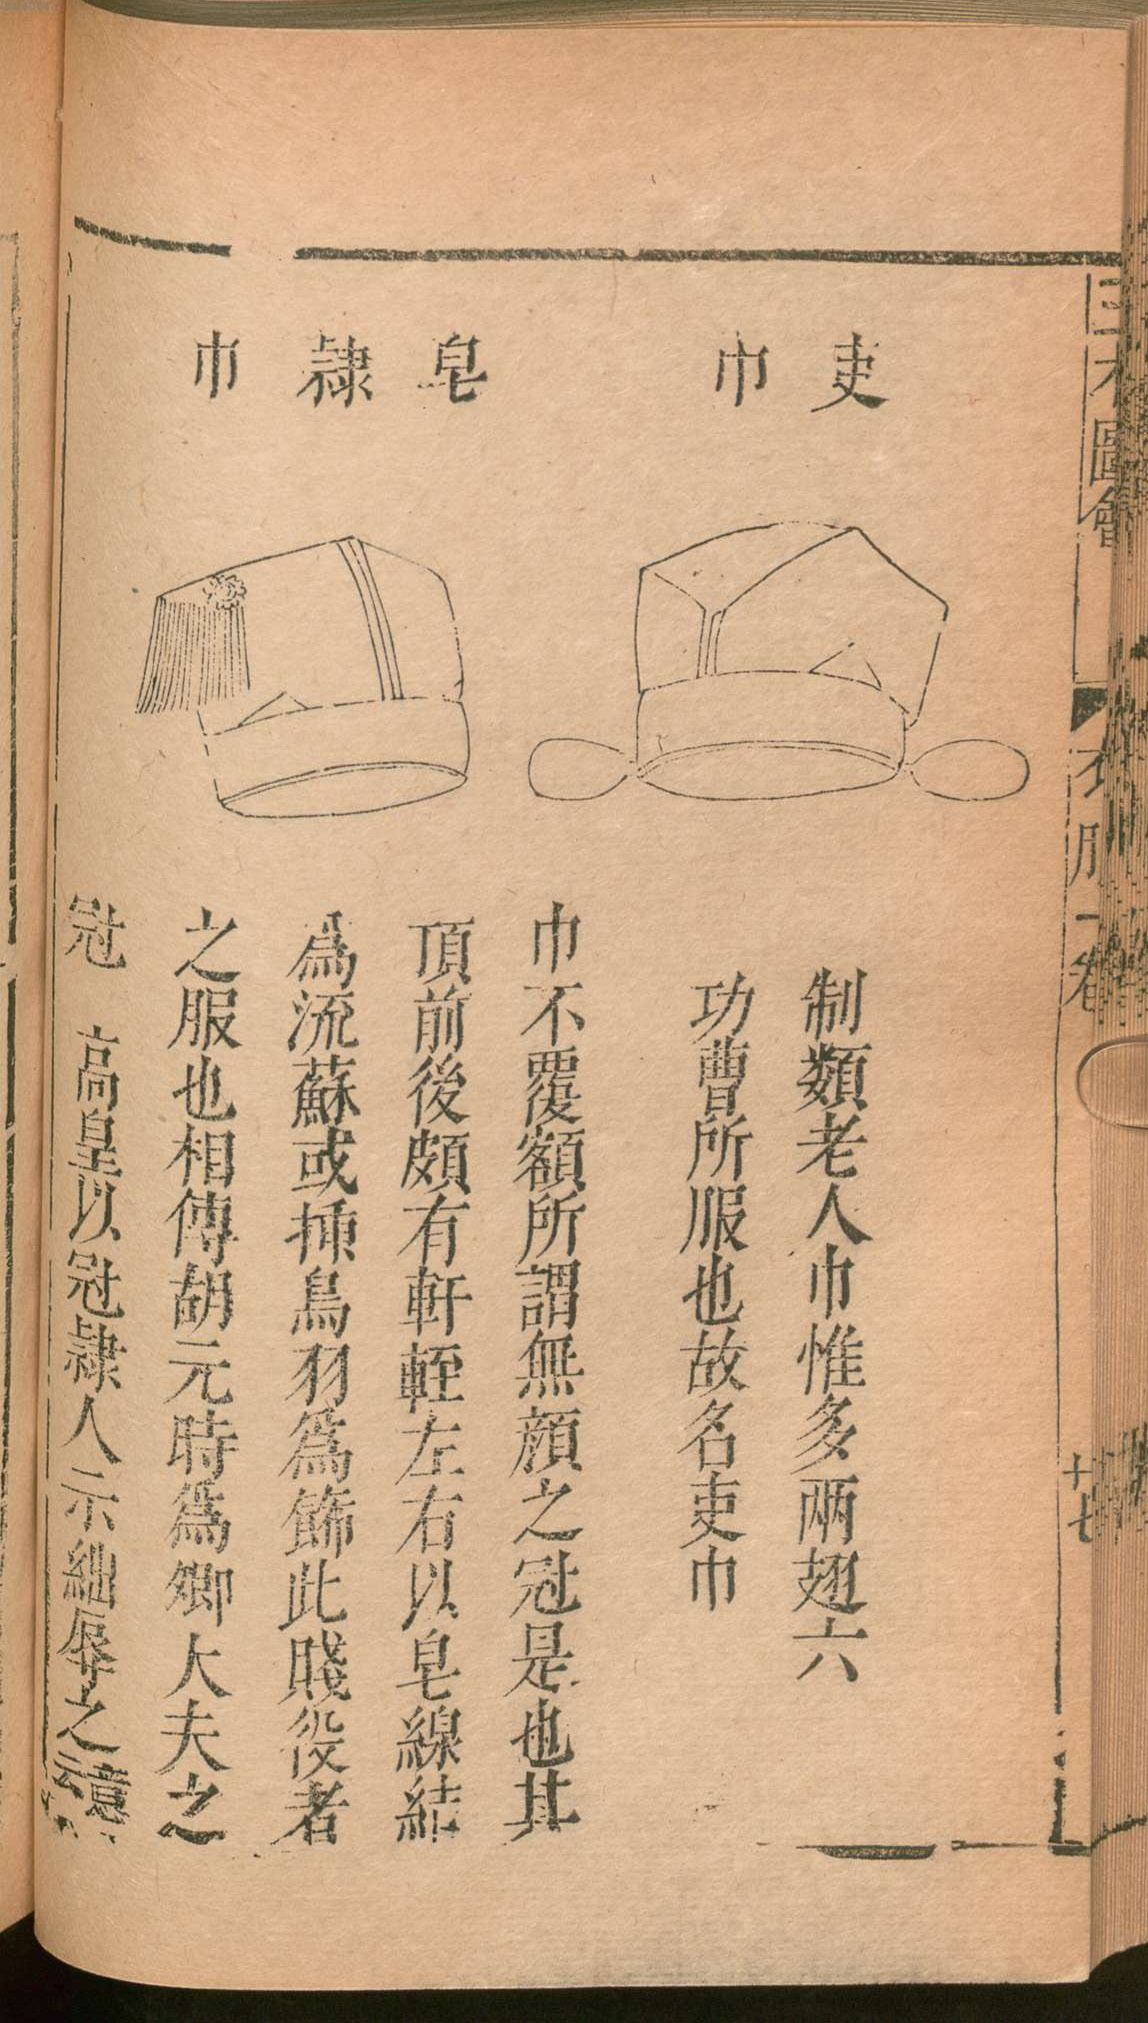 圖會
衣服一卷
十七
吏巾
制類老人巾惟多兩翅六
功曹所服也故名吏巾
皂隸巾
巾不覆額所謂無顏之冠是也其
頂前後頗有軒輊左右以皂線結
爲流蘇或揷鳥羽爲飾此賤役者
之服也相傳胡元時爲卿大夫之
冠　高皇以冠隸人示絀辱之意云